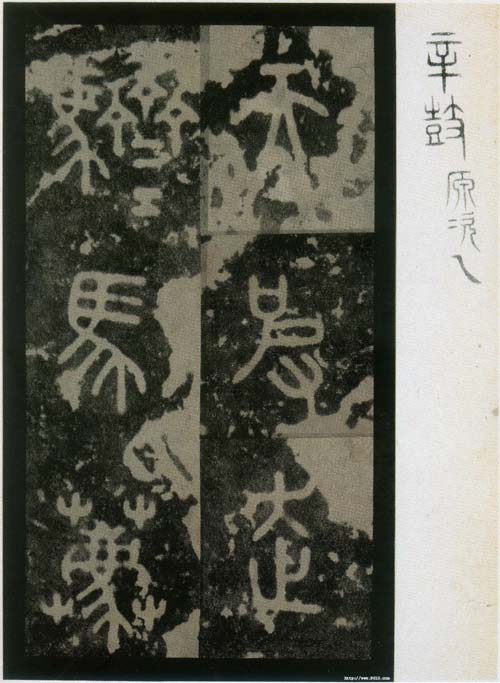 辛鼓 原次八
天
皮走
馬薦
http://www.9610.com